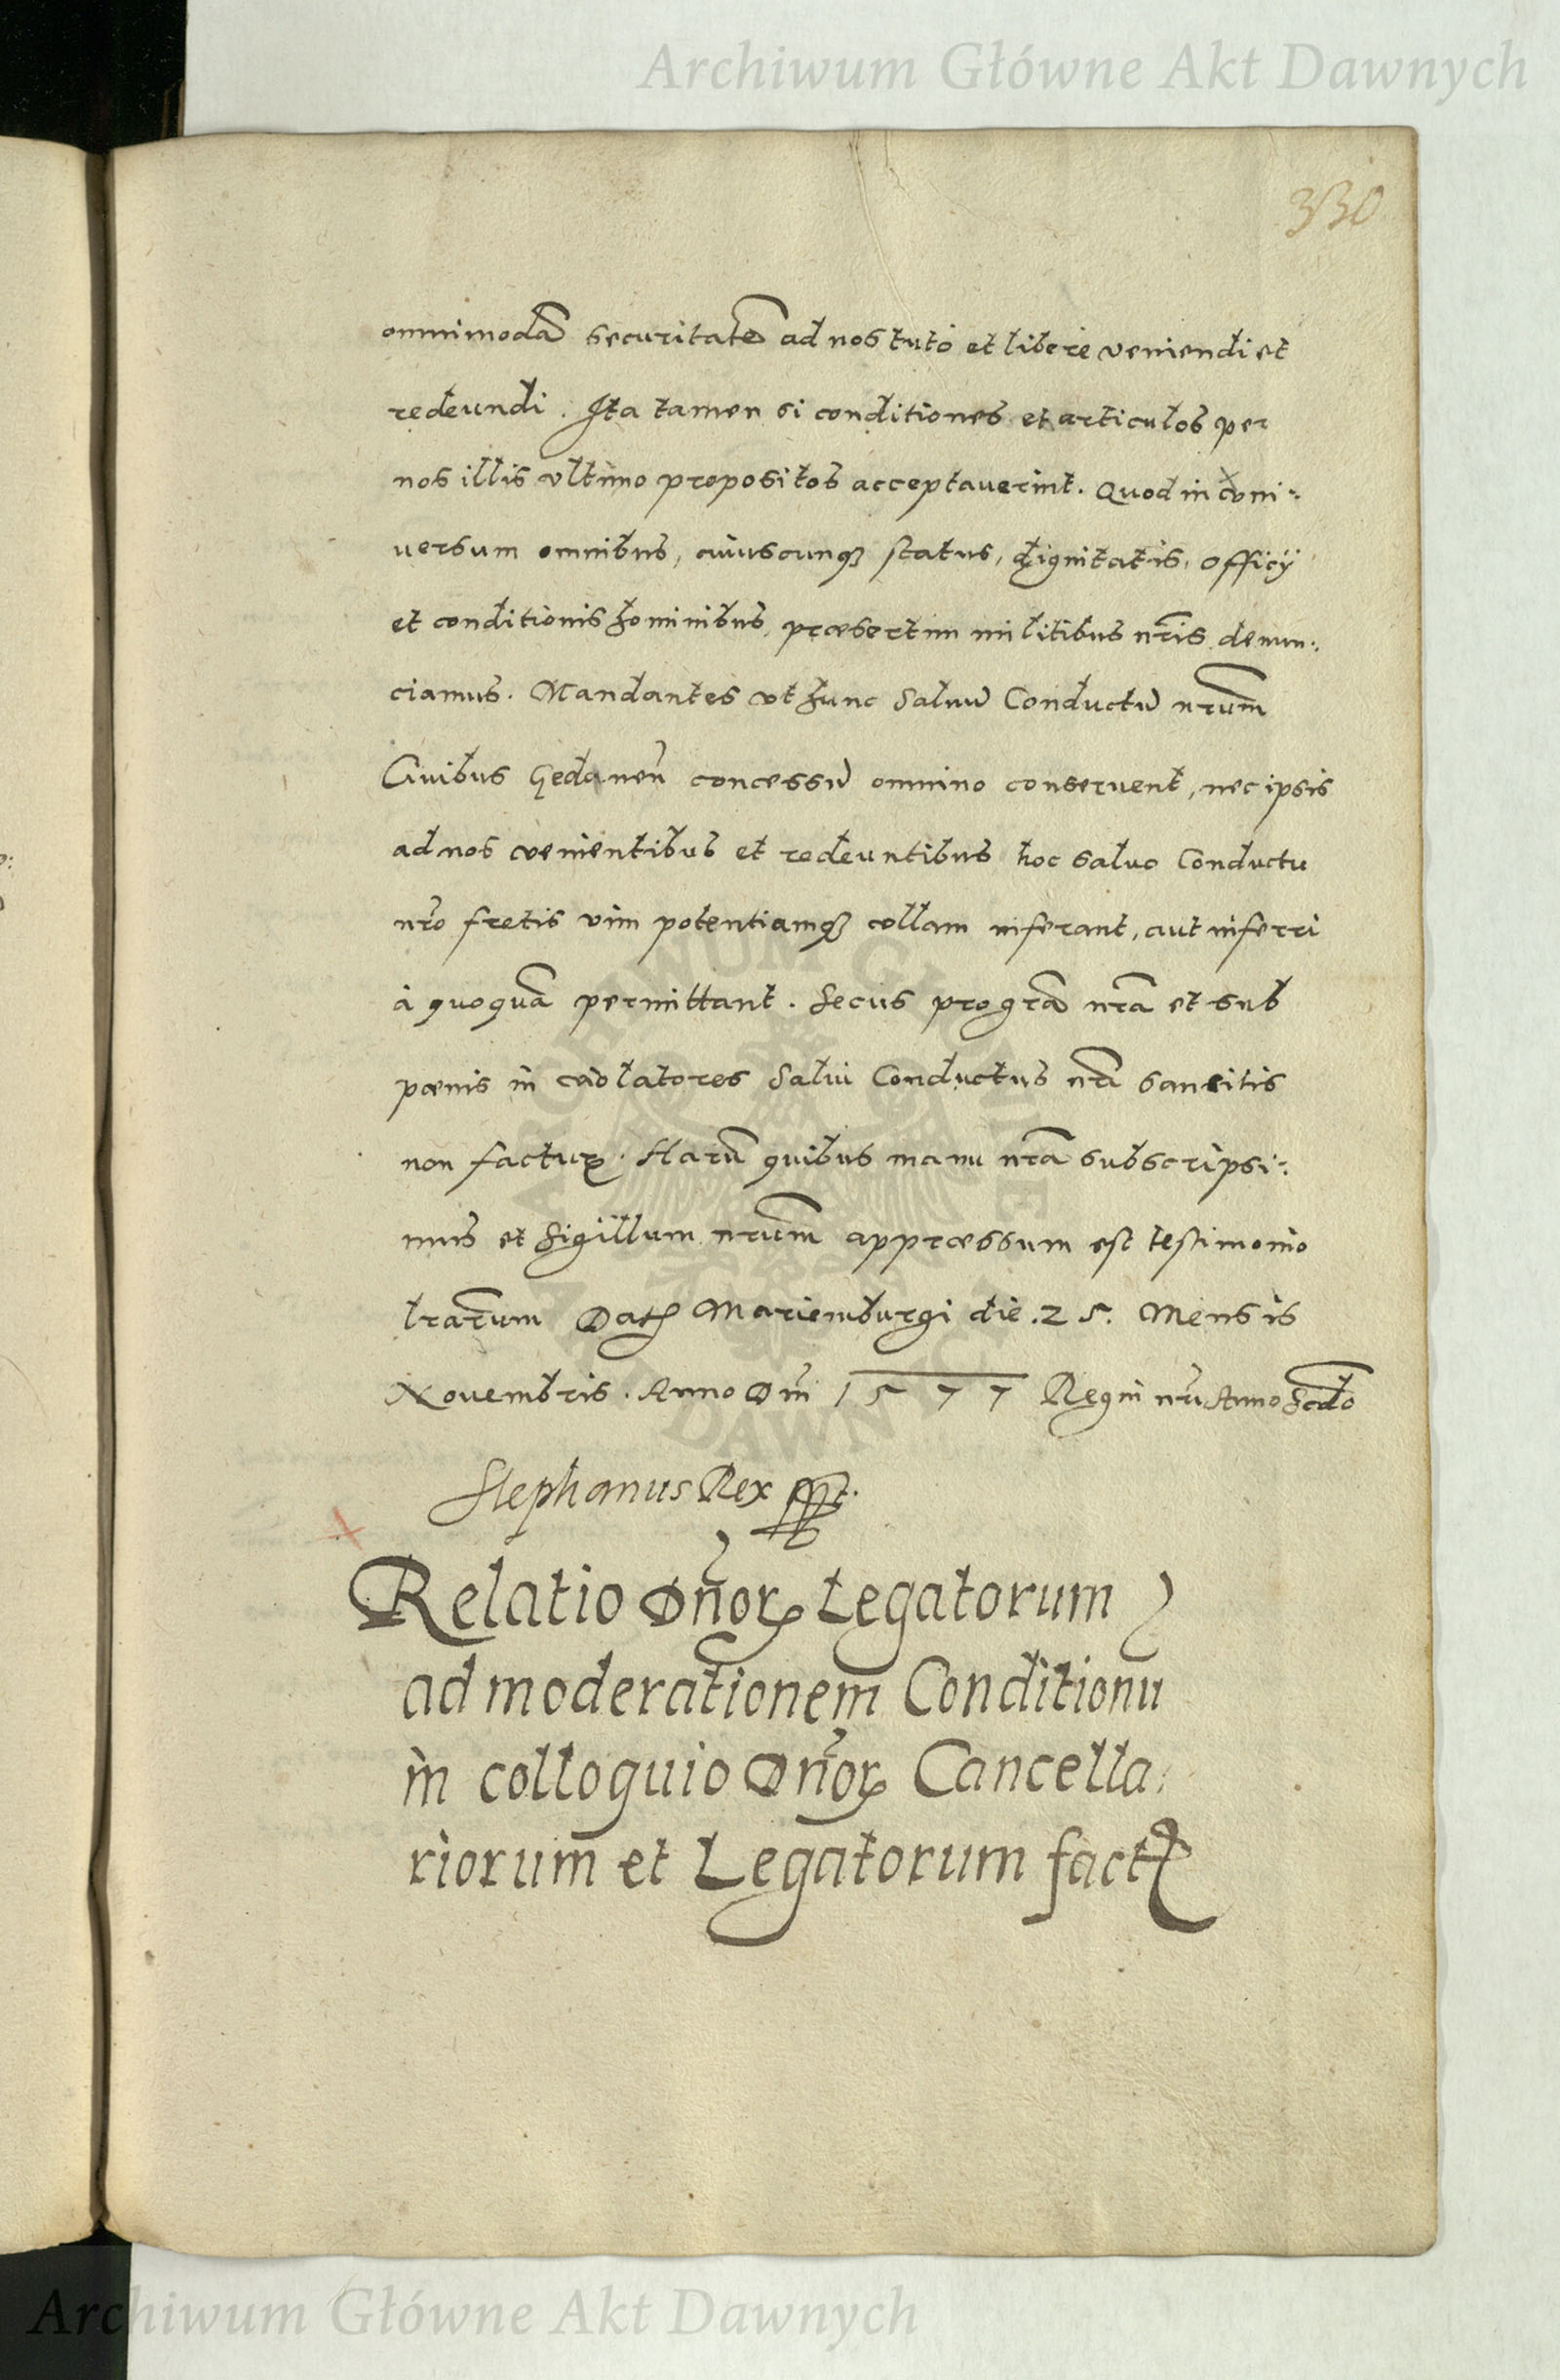 Archiwum Główne Akt Dawnych
330
omnimodã securitatẽ ad nos tutò et liberè veniendi et
redeundi. Ita tamen si conditiones et articulos per
nos illis vltimo propositos acceptauerint. Quod in vni:
uersum omnibus, cuiuscunq₃ status, dignitatis, officij
et conditionis hominibus, præsertim militibus nr̃is denun:
ciamus. Mandantes vt hunc Saluũ Conductũ nrũm
Ciuibus Gedanen̄ concessũ omnino conseruent, nec ipsis
ad nos venientibus et redeuntibus hoc saluo Conductu
nr̃o fretis vim potentiamq₃ vllam inferant, aut inferri
à quoquã permittant. Secus pro gr̃a nr̃a et sub
pœnis in violatores Salui Conductus nr̃i sancitis
non facturꝫ. Harũ quibus manu nr̃a subscripsi:
mus et Sigillum nrũm appræssum est testimonio
lrãrum Datꝫ Mariemburgi die .25. Mensis
Nouembris. Anno Dñi 1577 Regni nr̃i Anno Scdo
Stephanus Rex
Relatio Dñorꝫ Legatorum
ad moderationem Conditionũ
in colloquio Dñorꝫ Cancella:
riorum et Legatorum factꝫ
ARCHIWUM GŁÓWNE AKT DAWNYCH
Archiwum Główne Akt Dawnych